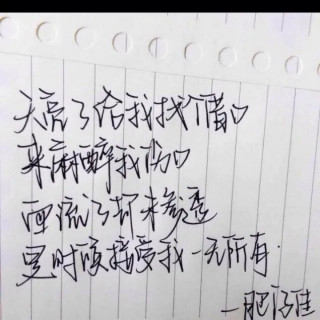 天亮了给我找个借口
来麻醉我伤口
酒流了却未渗透
是时候接受我一无所有.
一肥仔佳